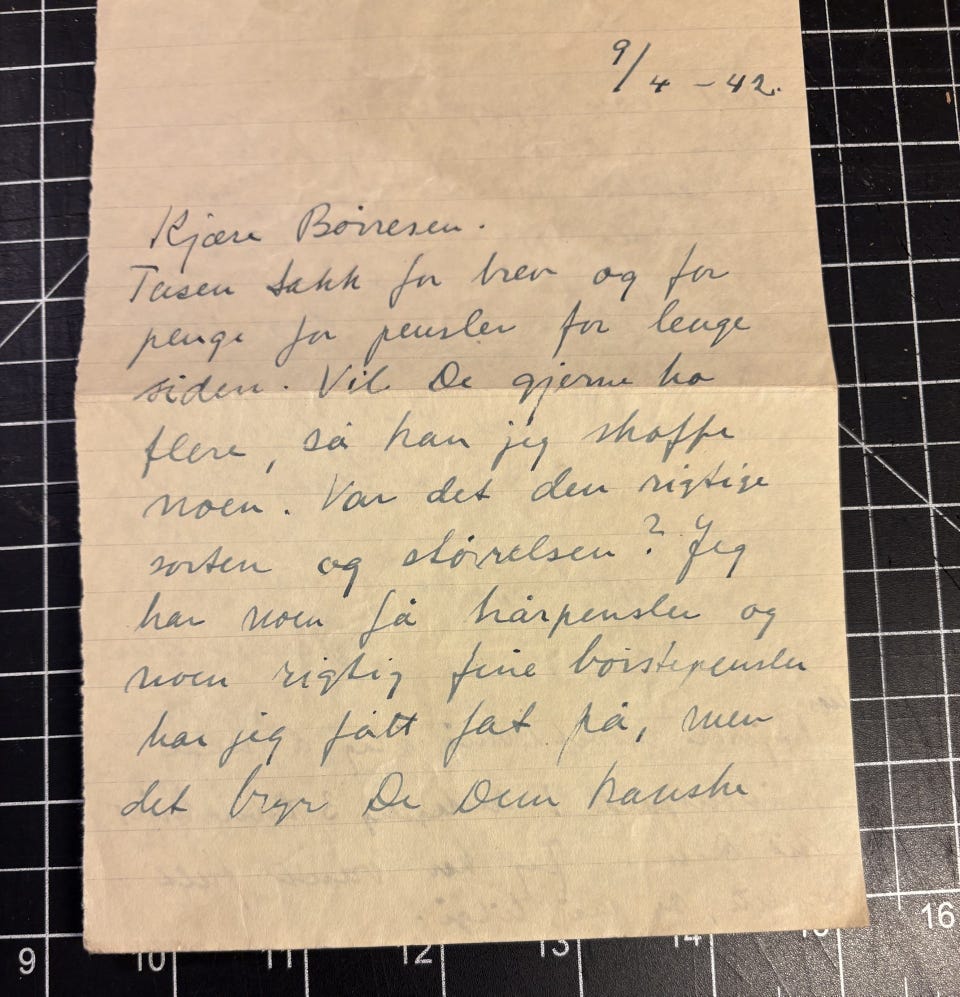 9/4 - 42.
Kjære Böiresen.
Tusen takk for brev og for
penge for pensler for lenge
siden. Vil De gjerne ha
flere, så kan jeg skaffe
noen. Var det den rigtige
sorten og störrelsen? Jeg
har noen få hårpensler og
noen rigtig fine börstepensler
har jeg fått fat på, men
det bryr De Dem kanske
9 10 11 12 13 14 15 16